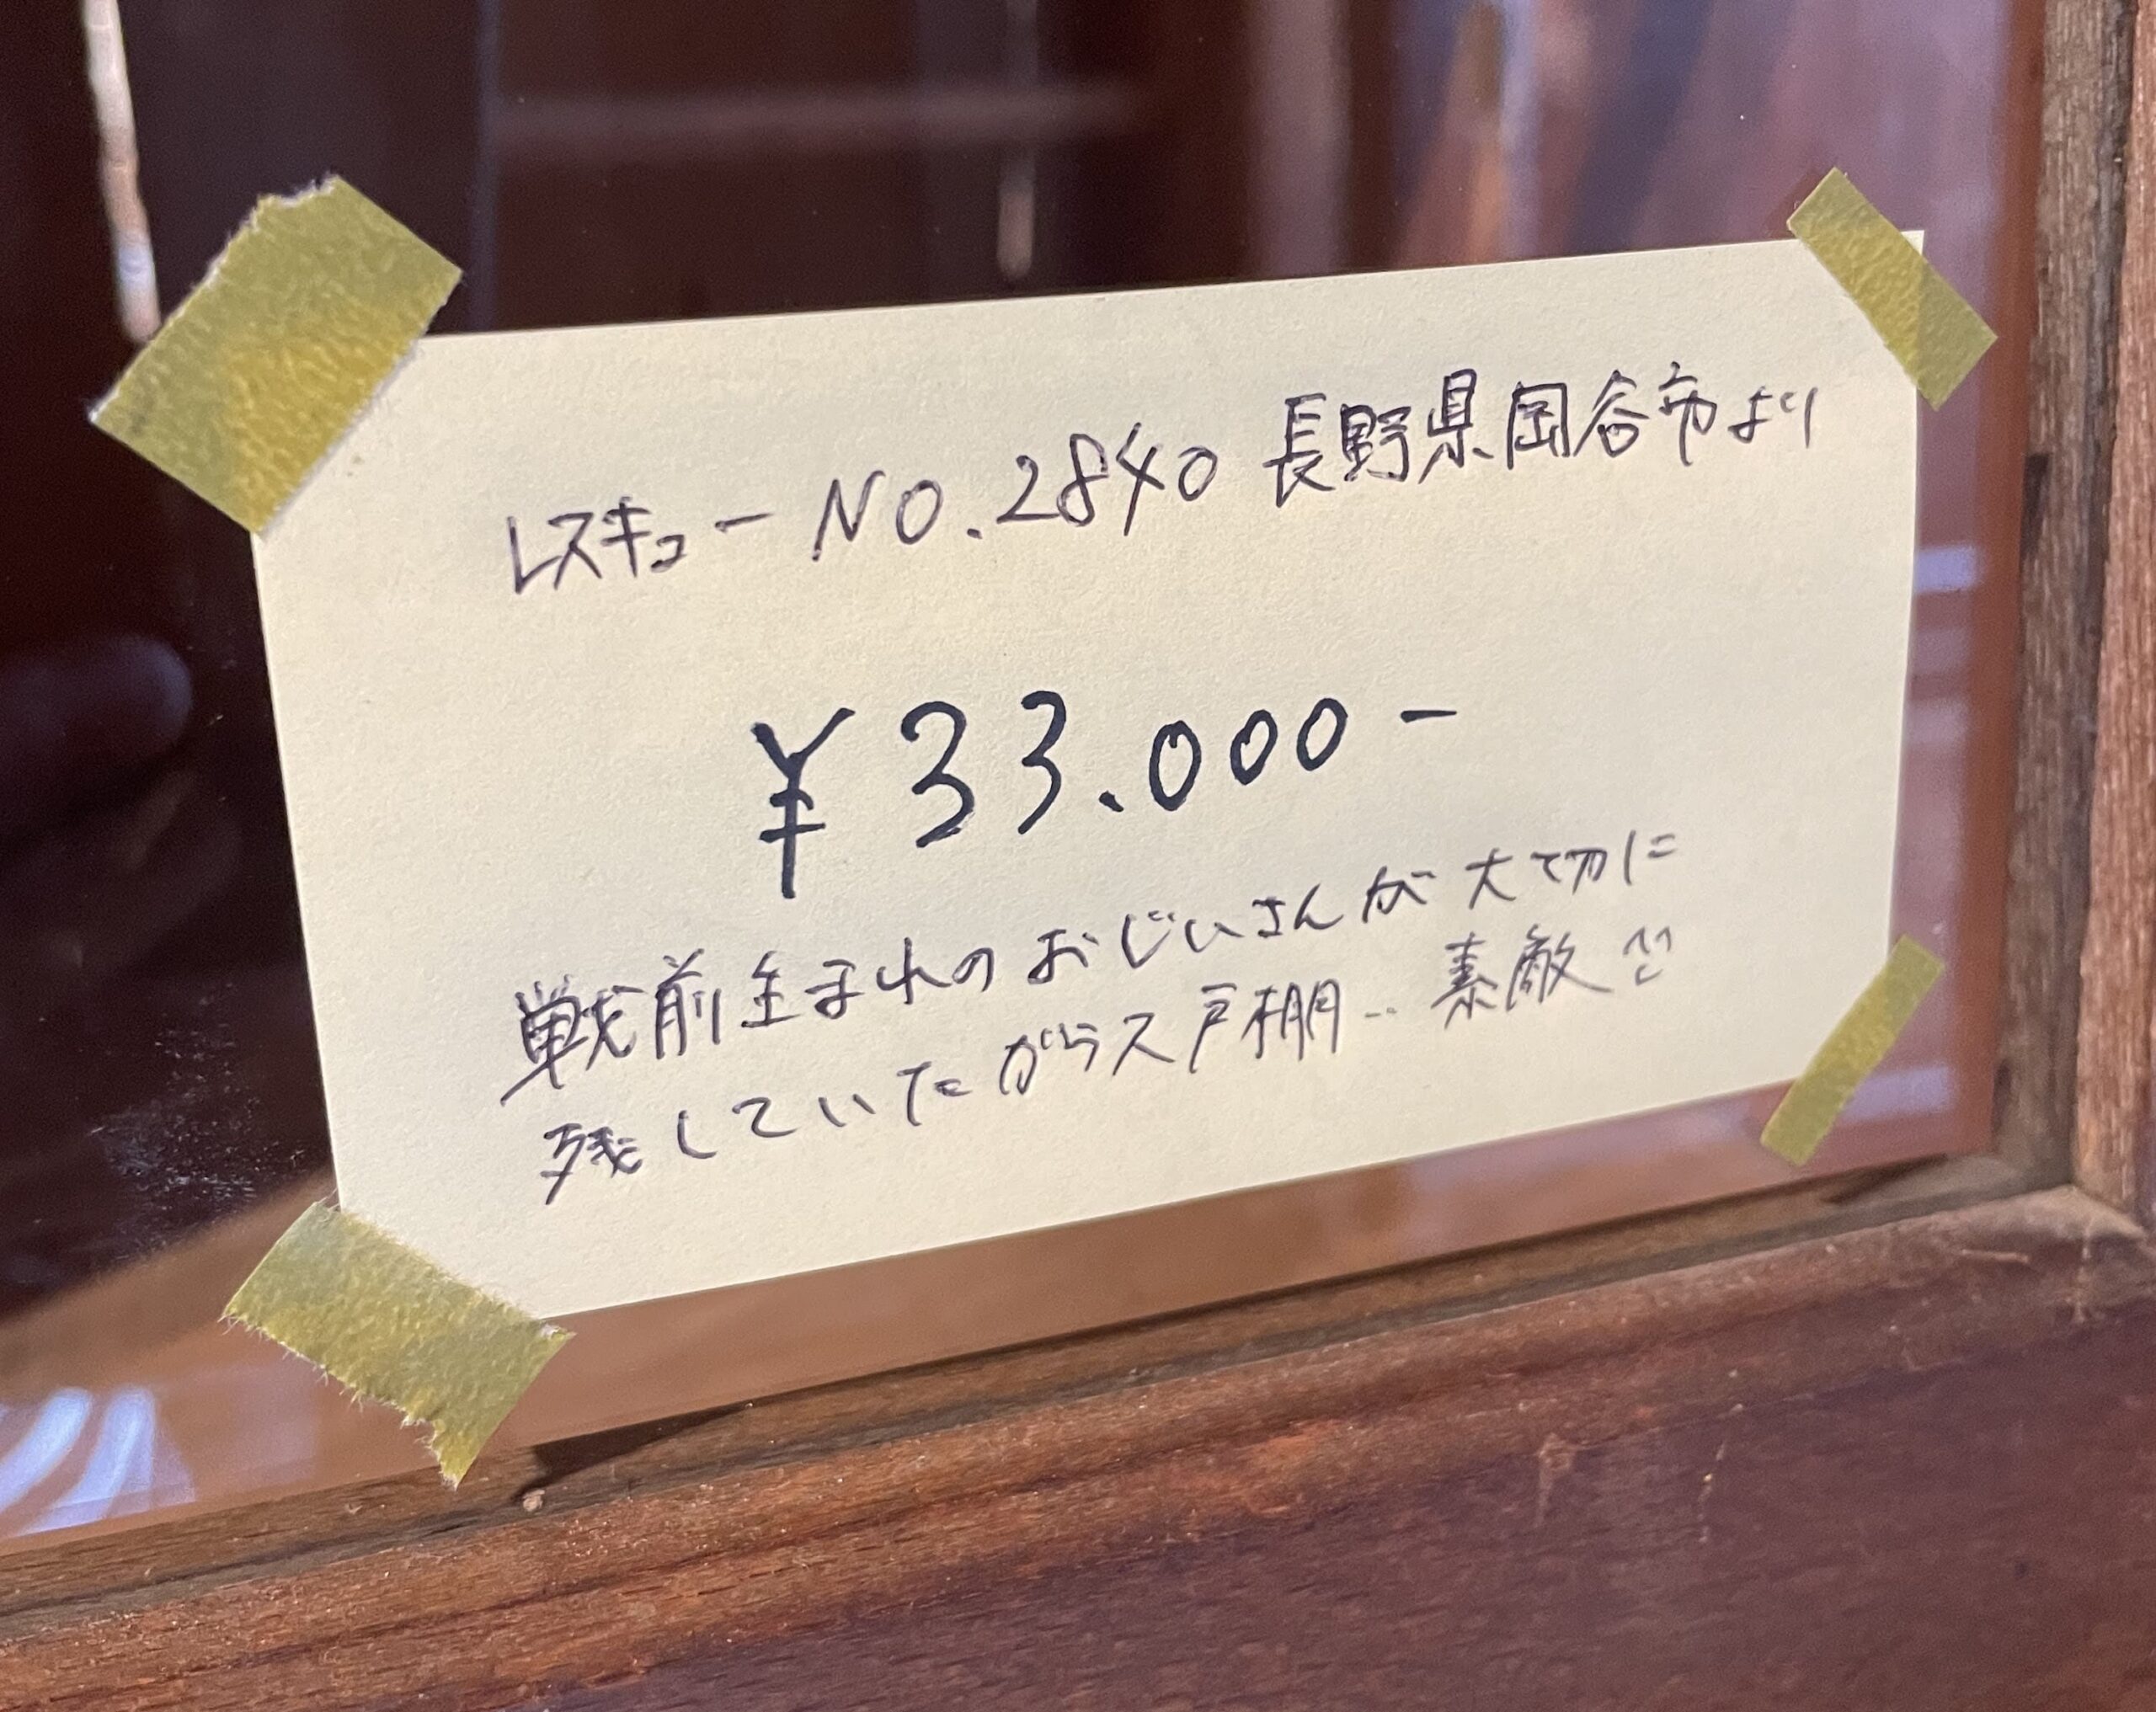 レスキューNO.2840 長野県岡谷市より
¥33.000-
戦前生まれのおじいさんが大切に
残していたガラス戸棚‥素敵